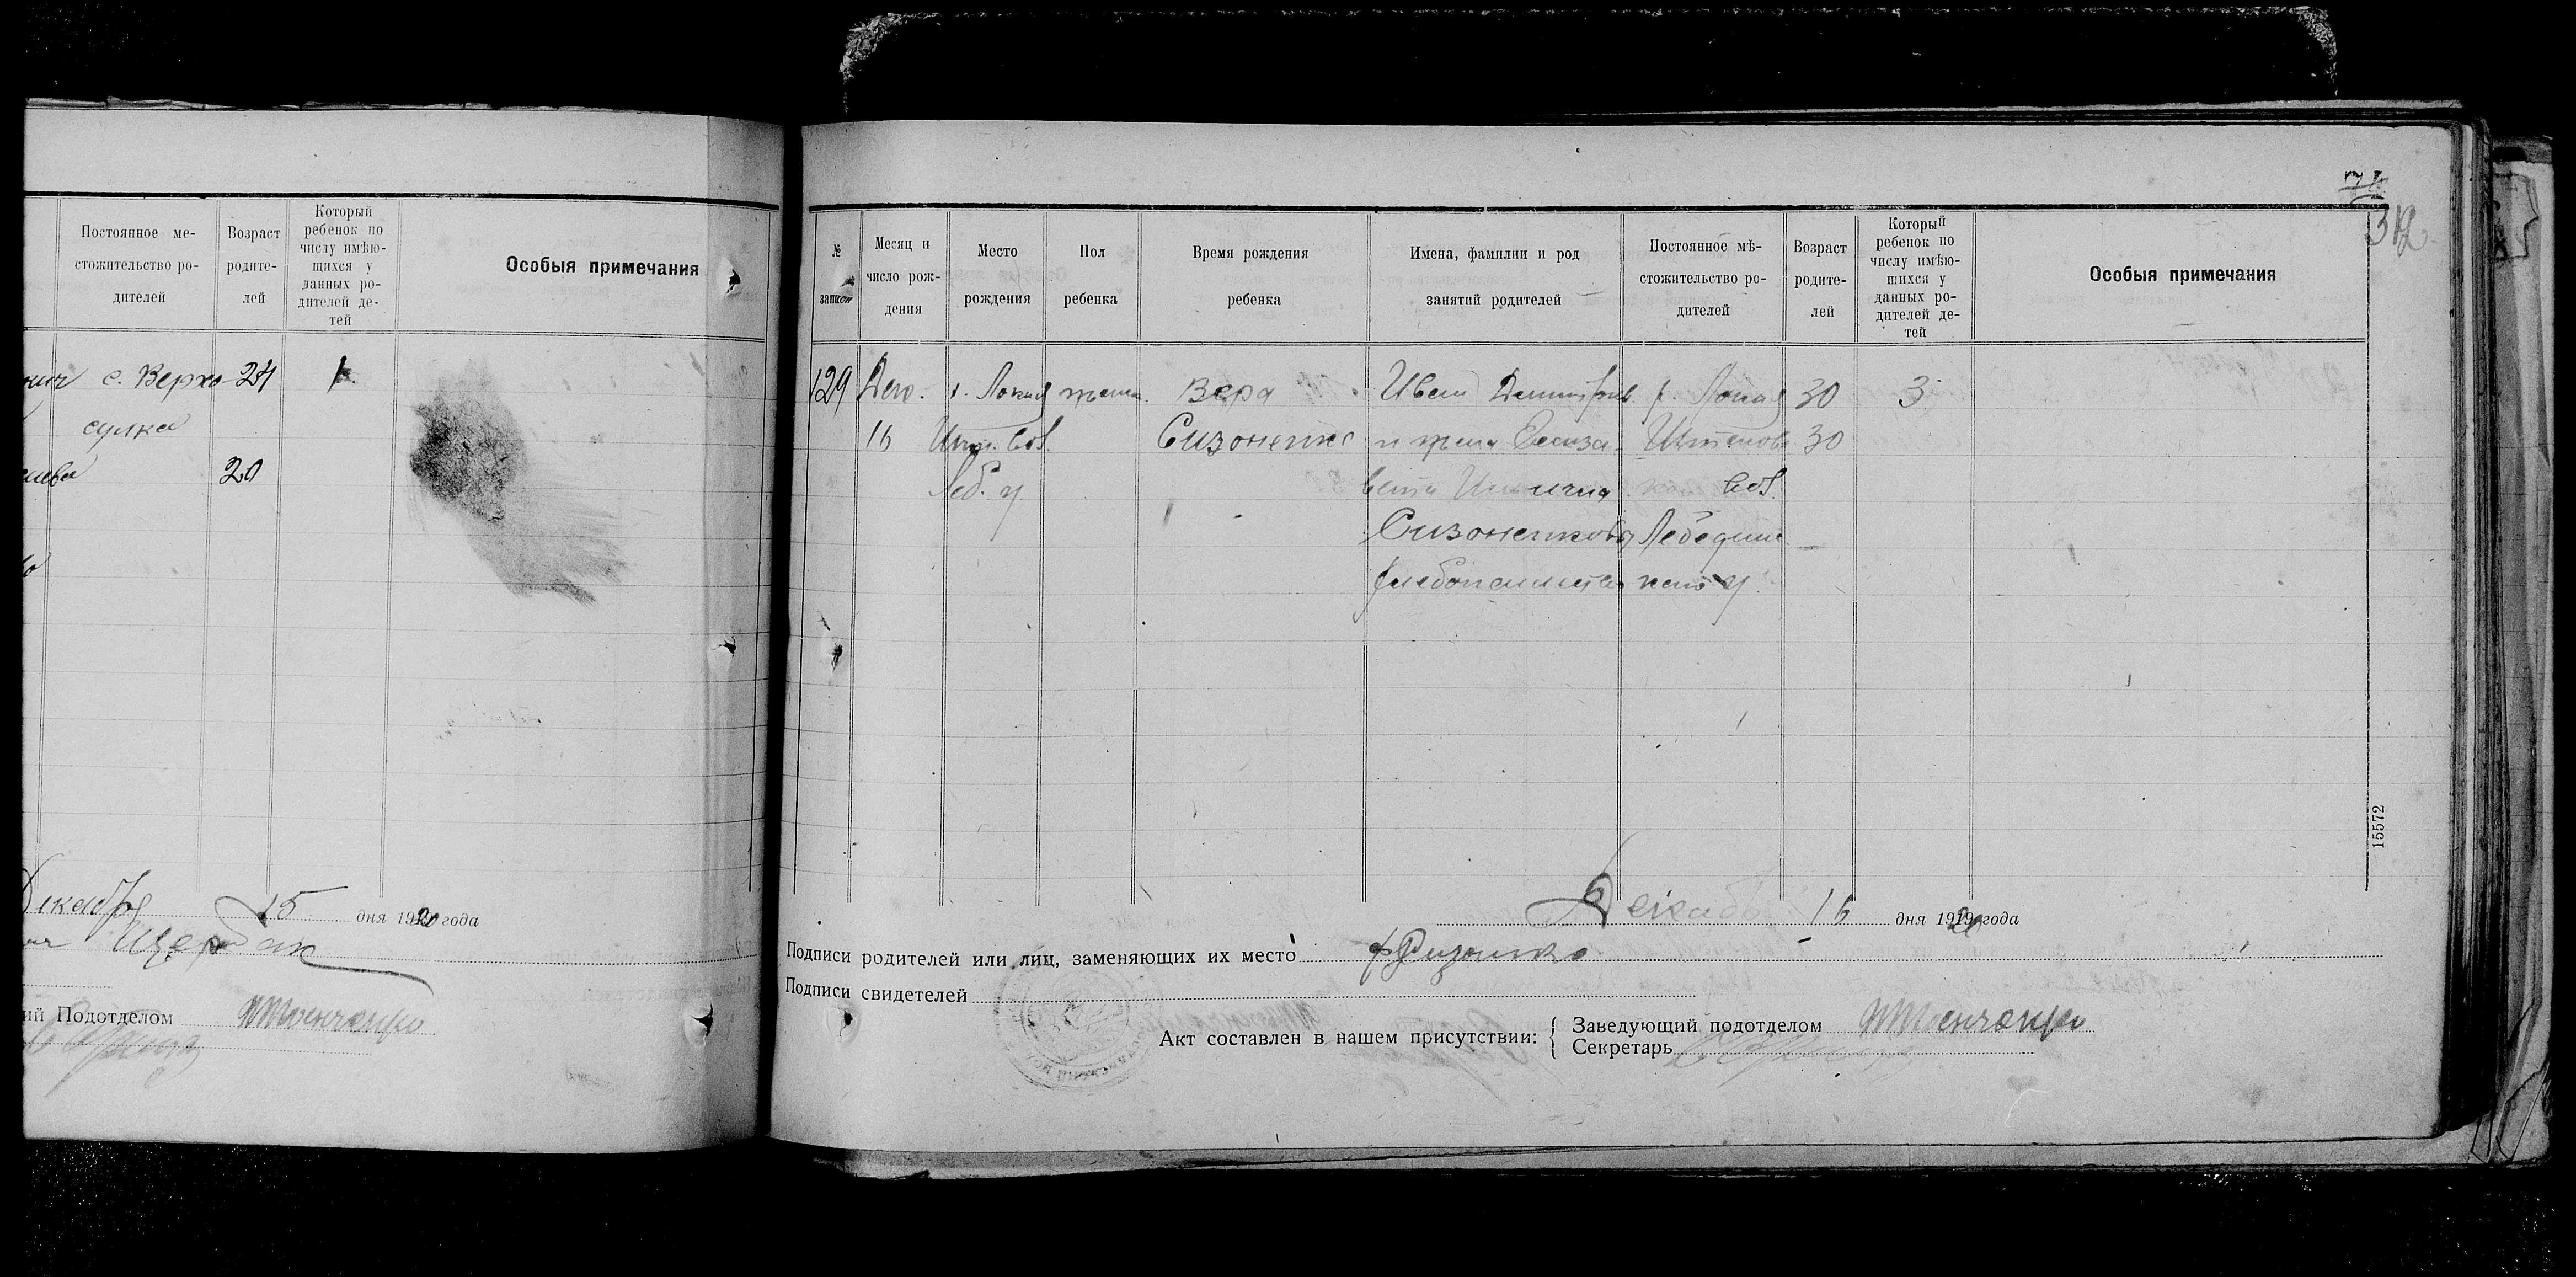 Постоянное ме-
стожительство ро-
дителей
Возраст
родите-
лей
Который
ребенок по
числу имѣю-
щихся у
данных ро-
дителей де-
тей
Особыя примечания
с. Верхо-
сулка
24
20
1
Декабря 15 дня 1920 года
Щербак
ий Подотделом
74
312
№
записи
Месяц и
число рож-
дения
Место
рождения
Пол
ребенка
Время рождения
ребенка
Имена, фамилии и род
занятий родителей
Постоянное мѣ-
стожительство ро-
дителей
Возраст
родите-
лей
Который
ребенок по
числу имѣю-
щихся у
данных ро-
дителей де-
тей
Особыя примечания
129
Дек.
16
Леб. у.
женс.
Вера
Сизоненко
Иван Дмитриев.
и жена Елиза-
вета
Сизоненковы
хлебопашество
Штепов.
вол.
Лебедин-
у.
30
30
3
15572
Декабр 16 дня 1920 года
Подписи родителей или лиц, заменяющих их место
Подписи свидетелей
Акт составлен в нашем присутствии:
Заведующий подотделом
Секретарь